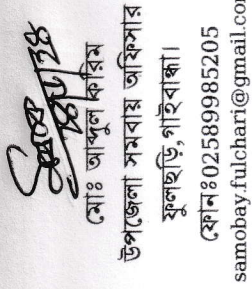 মোঃ আব্দুল করিম
উপজেলা সমবায় অফিসার
ফুলছড়ি, গাইবান্ধা।
ফোনঃ02589985205
samobay.fulchari@gmail.co